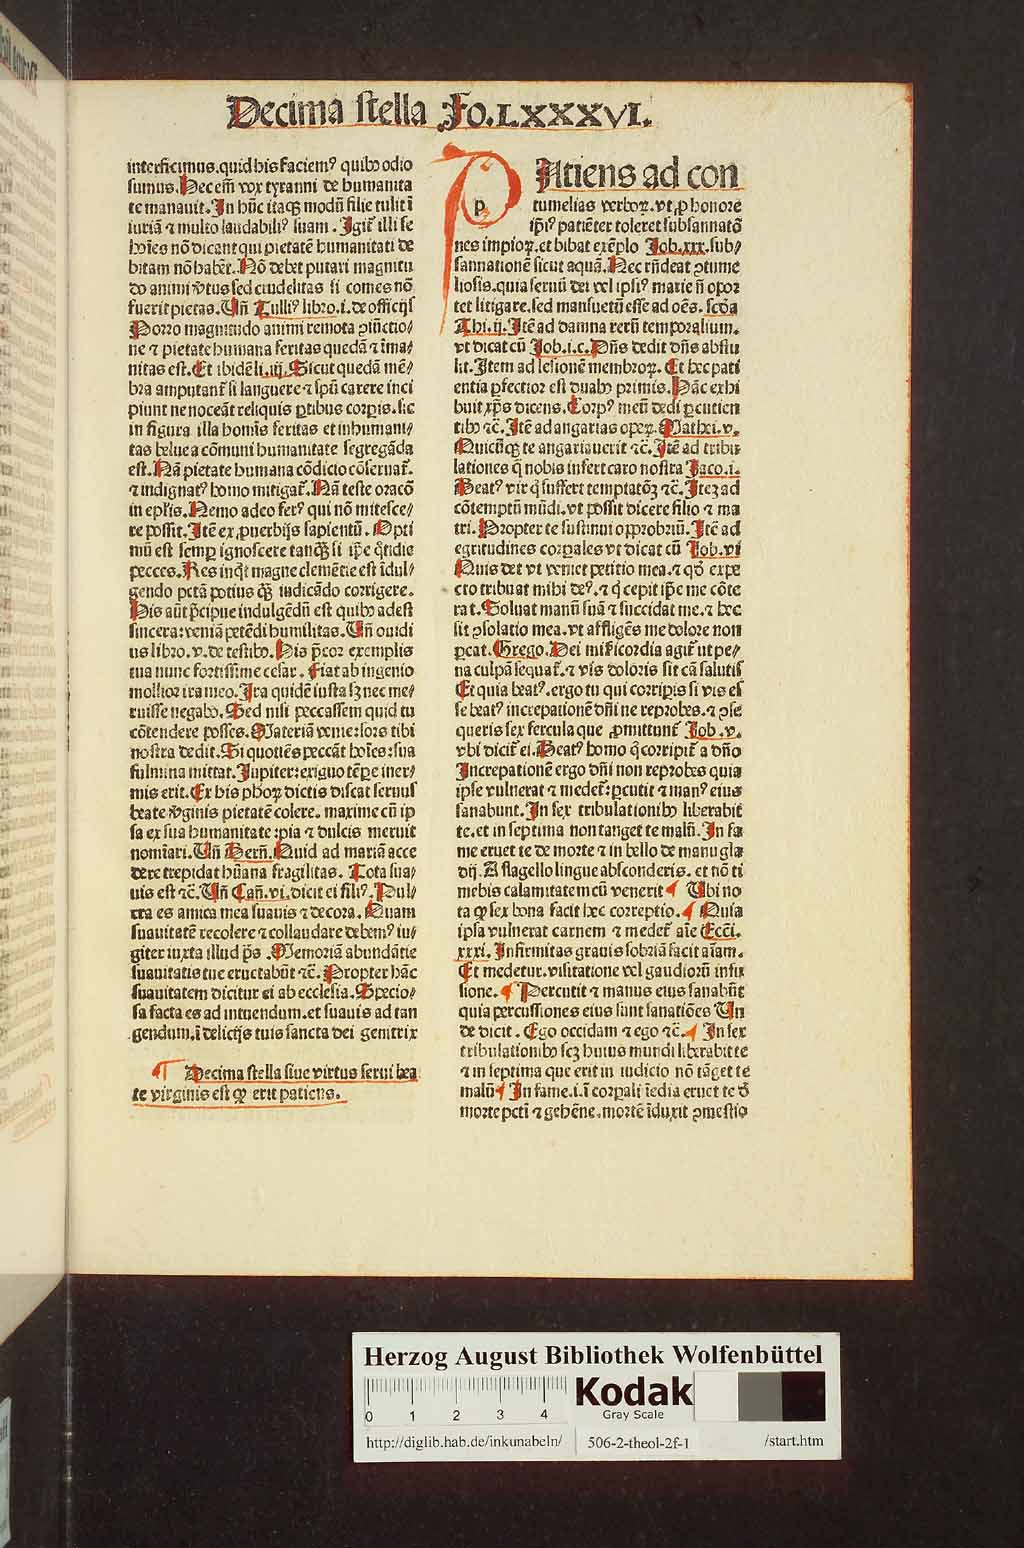 Decima stella Fo. LXXXVI.
interficimus. quid his faciemꝰ quibꝫ odio
sumus. Hec em̄ vox tyranni de humanita
te manauit. In hūc itaqꝫ modū filie tulit ī
iuriā ⁊ multo laudabiliꝰ suam. Igit̄ illi se
hoīes nō dicant qui pietatē humanitati de
bitam nō habēt. Nō debet putari magnitu
do animi v̄tus sed crudelitas si comes nō
fuerit pietas. Vn̄ Tulliꝰ libro .i. de officijs
Porro magnitudo animi remota ꝯiūctio⸗
ne ⁊ pietate humana feritas quedā ⁊ īma⸗
nitas est. Et ibidē li. iij. Sicut quedā mē⸗
bra amputant̄ si languere ⁊ spū carere inci
piunt ne noceāt reliquis ꝑtibus corꝑis. sic
in figura illa homīs feritas et inhumani⸗
tas belue a cōmuni humanitate segregāda
est. Nā pietate humana cōdicio cōseruat̄.
⁊ indignatꝰ homo mitigat̄. Nā teste oracō
in ep̄lis. Nemo adeo ferꝰ qui nō mitesce⸗
re possit. Itē ex ꝓuerbijs sapientū. Opti
mū est semꝑ ignoscere tanqꝫ si ip̄e q̄tidie
pecces. Res inqͥt magne clemētie est īdul⸗
gendo pctā potius qꝫ iudicādo corrigere.
His aūt p̄cipue indulgēdū est quibꝫ adest
sincera: veniā petēdi humilitas. Vn̄ ouidi
us libro .v. de testibꝫ. His p̄cor exemplis
tua nunc fortissime cesar. Fiat ab ingenio
mollior ira meo. Ira quidē iusta sꝫ nec me⸗
ruisse negabo. Sed nisi peccassem quid tu
cōtendere posses. Materiā venie: sors tibi
nostra dedit. Si quotiēs peccāt hoīes: sua
fulmina mittat. Jupiter: exiguo tēpe iner⸗
mis erit. Ex his phoꝝ dictis discat seruus
beate v̄ginis pietatē colere. maxime cū ip
sa ex sua humanitate: pia ⁊ dulcis meruit
nomīari. Vn̄ Bern̄. Quid ad mariā acce
dere trepidat hūana fragilitas. Tota sua⸗
uis est ⁊c̄. Vn̄ Can̄. vi. dicit ei filiꝰ. Pul⸗
cra es amica mea suauis ⁊ decora. Quam
suauitatē recolere ⁊ collaudare debemꝰ iu⸗
giter iuxta illud p̄s. Memoriā abundātie
suauitatis tue eructabūt ⁊c̄. Propter hāc
suauitatem dicitur ei ab ecclesia. Specio⸗
sa facta es ad intuendum. et suauis ad tan
gendum. ī delicijs tuis sancta dei genitrix
¶ Decima stella siue virtus serui bea
te virginis est qꝙ erit patiens.
p
PAtiens ad con
tumelias verboꝝ. vt ꝓ honore
ip̄iꝰ patiēter toleret subsannatō
nes impioꝝ. et bibat exēplo Job. xxx. sub⸗
sannationē sicut aquā. Nec rn̄deat ꝯtume
liosis. quia seruū dei vel ipsiꝰ marie n̄ opor
tet litigare. sed mansuetū esse ad oēs. scd̄a
Thi. ij. Itē ad damna rerū temporalium.
vt dicat cū Job. i. c. Dn̄s dedit dn̄s abstu
lit. Item ad lesionē membroꝝ. Et hec pati
entia ꝑfectior est duabꝫ primis. Hāc exhi
buit xp̄s dicens. Corpꝰ meū dedi ꝑcutien
tibꝫ ⁊c̄. Itē ad angarias opeꝝ. Mathei. v.
Quicūqꝫ te angariauerit ⁊c̄. Itē ad tribu
lationes q̄ nobis infert caro nostra Jaco. i.
Beatꝰ vir qͥ suffert temptatōꝫ ⁊c̄. Iteꝫ ad
cōtemptū mūdi. vt possit dicere filio ⁊ ma
tri. Propter te sustinui opprobriū. Itē ad
egritudines corꝑales vt dicat cū Job. vi
Quis det vt veniet petitio mea. ⁊ qō expe
cto tribuat mihi deꝰ. ⁊ qͥ cepit ip̄e me cōte
rat. Soluat manū suā ⁊ succidat me. ⁊ hec
sit ꝯsolatio mea. vt affligēs me dolore non
ꝑcat. Grego. Dei mīs̄icordia agit̄ ut pe⸗
na culpā sequat̄. ⁊ vis doloris sit cā salutis
Et quia beatꝰ. ergo tu qui corriꝑis si vis es
se beatꝰ increpationē dn̄i ne reprobes. ⁊ ꝯse
queris sex fercula que ꝓmittunt̄ Job. v.
vbi dicit̄ ei. Beatꝰ homo qͥ corripit̄ a dn̄o
Increpationē ergo dn̄i non reprobes quia
ipse vulnerat ⁊ medet̄: ꝑcutit ⁊ manꝰ eius
sanabunt. In sex tribulationibꝫ liberabit
te. et in septima non tanget te malū. In fa
me eruet te de morte ⁊ in bello de manu gla
dij. A flagello lingue absconderis. et nō ti
mebis calamitatem cū venerit ¶ Vbi no
ta qꝙ sex bona facit hec correptio. ¶ Quia
ipsa vulnerat carnem ⁊ medet̄ aīe Ecci̅.
xxxi. Infirmitas grauis sobriā facit aīam.
Et medetur. visitatione vel gaudiorū infu
sione. ¶ Percutit ⁊ manus eius sanabūt
quia percussiones eius sunt sanatiōes Un
de dicit. Ego occidam ⁊ ego ⁊c̄. ¶ In sex
tribulationibꝫ scꝫ huius mundi liberabit te
⁊ in septima que erit in iudicio nō tāget te
malū ¶ In fame .i. ī corꝑali īedia eruet te d̄
morte pcti ⁊ gehēne. mortē īduxit ꝯmestio
Herzog August Bibliothek Wolfenbüttel
0 1 2 3 4
Kodak
Gray Scale
http://diglib.hab.de/inkunabeln/ 506-2-theol-2f-1 /start.htm